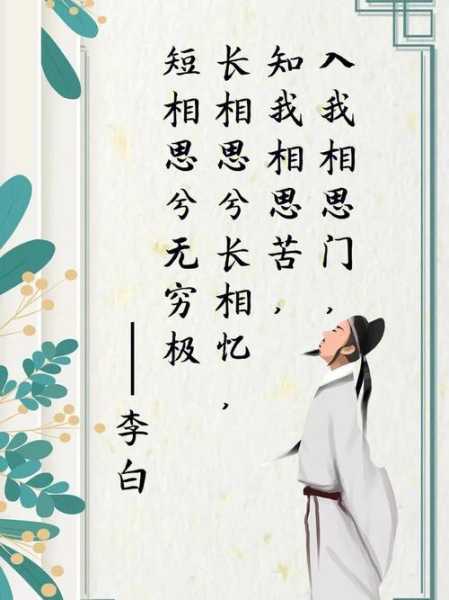 入我相思门，
知我相思苦，
长相思兮长相忆，
短相思兮无穷极
——李白